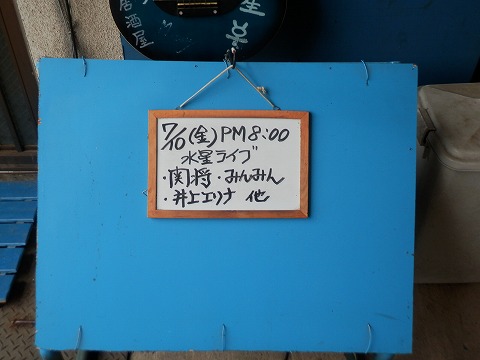 居酒屋
7/10(金)PM8:00
水星ライブ
・関将・みんみん
・井上エリナ 他